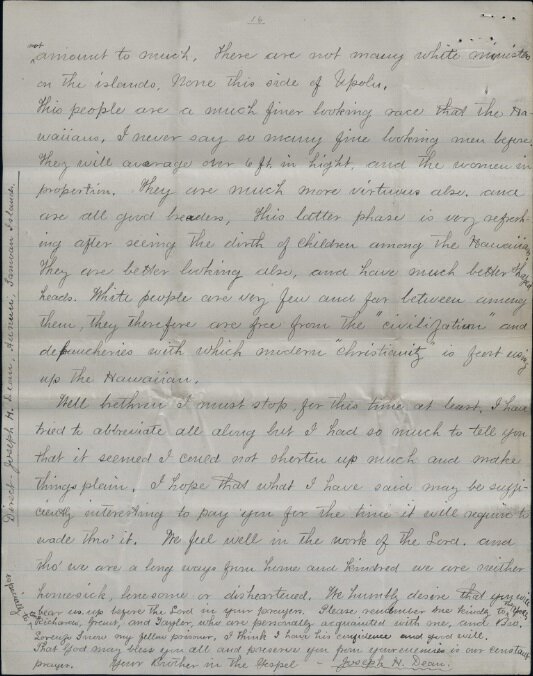 16
not
amount to much. There are not many white ministers
on the islands. None this side of Upolu.
This people are a much finer looking race that the Ha-
waiians. I never say so many fine looking men before.
They will average over 6 ft. in hight, and the women in
proportion. They are much more virtuous also. and
are all good breeders. This latter phase is very refresh-
ing after seeing the dirth of children among the Hawaiians.
They are better looking also, and have much better shaped
heads. White people are very few and far between among
them, they therefore are free from the "civilization" and
debaucheries with which modern "Christianity" is fast using
up the Hawaiian.
Well brethren I must stop, for this time at least. I have
tried to abbreviate all along but I had so much to tell you
that it seemed I could not shorten up much and make
things plain. I hope that what I have said may be suffi-
ciently interesting to pay you for the time it will require to
wade thro' it. We feel well in the work of the Lord. and
tho' we are a long ways from home and kindred we are neither
homesick, lonesome or disheartened. We humbly desire that you will
bear us up before the Lord in your prayers. Please remember me kindly to
Richards, Grant, and Taylor, who are personally acquainted with me, and Bro.
Lorenzo Snow my fellow prisoner. I think I have his confidence and good will.
That God may bless you all and preserve you from your enemies is our constant
prayer. Your Brother in the Gospel - Joseph H. Dean.
Direct- Joseph H. Dean, Aunuu, Samoan Islands.